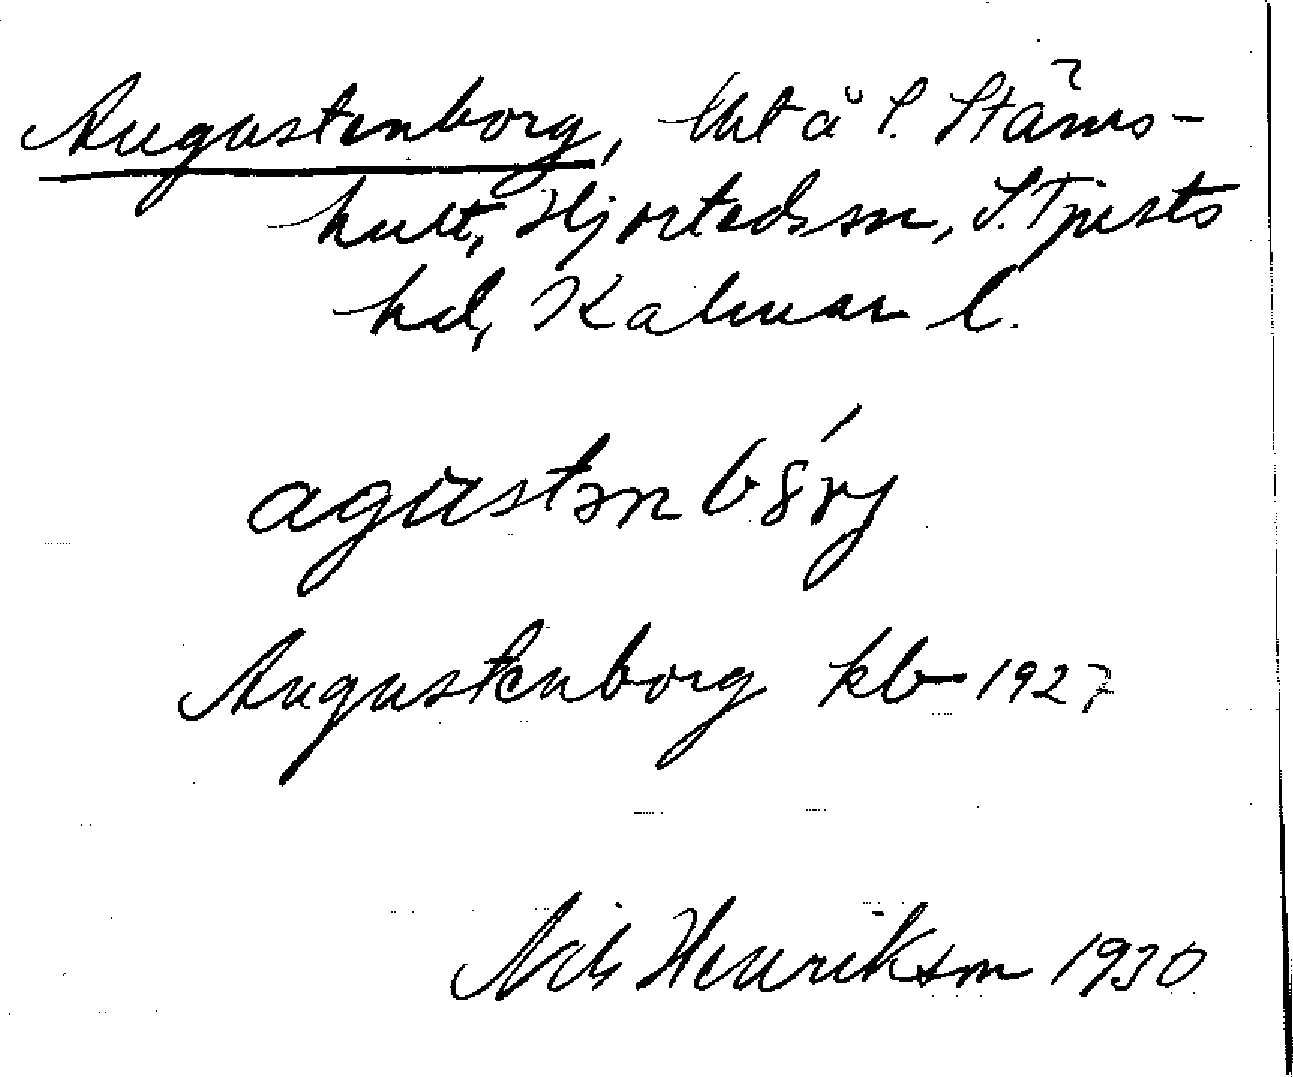 Augustenborg, lht å S. Stäms-
hult, Hjorteds sn, S. Tjusts
hd, Kalmar l.
Augustenborg kb 1927
Nils Henrikson 1930